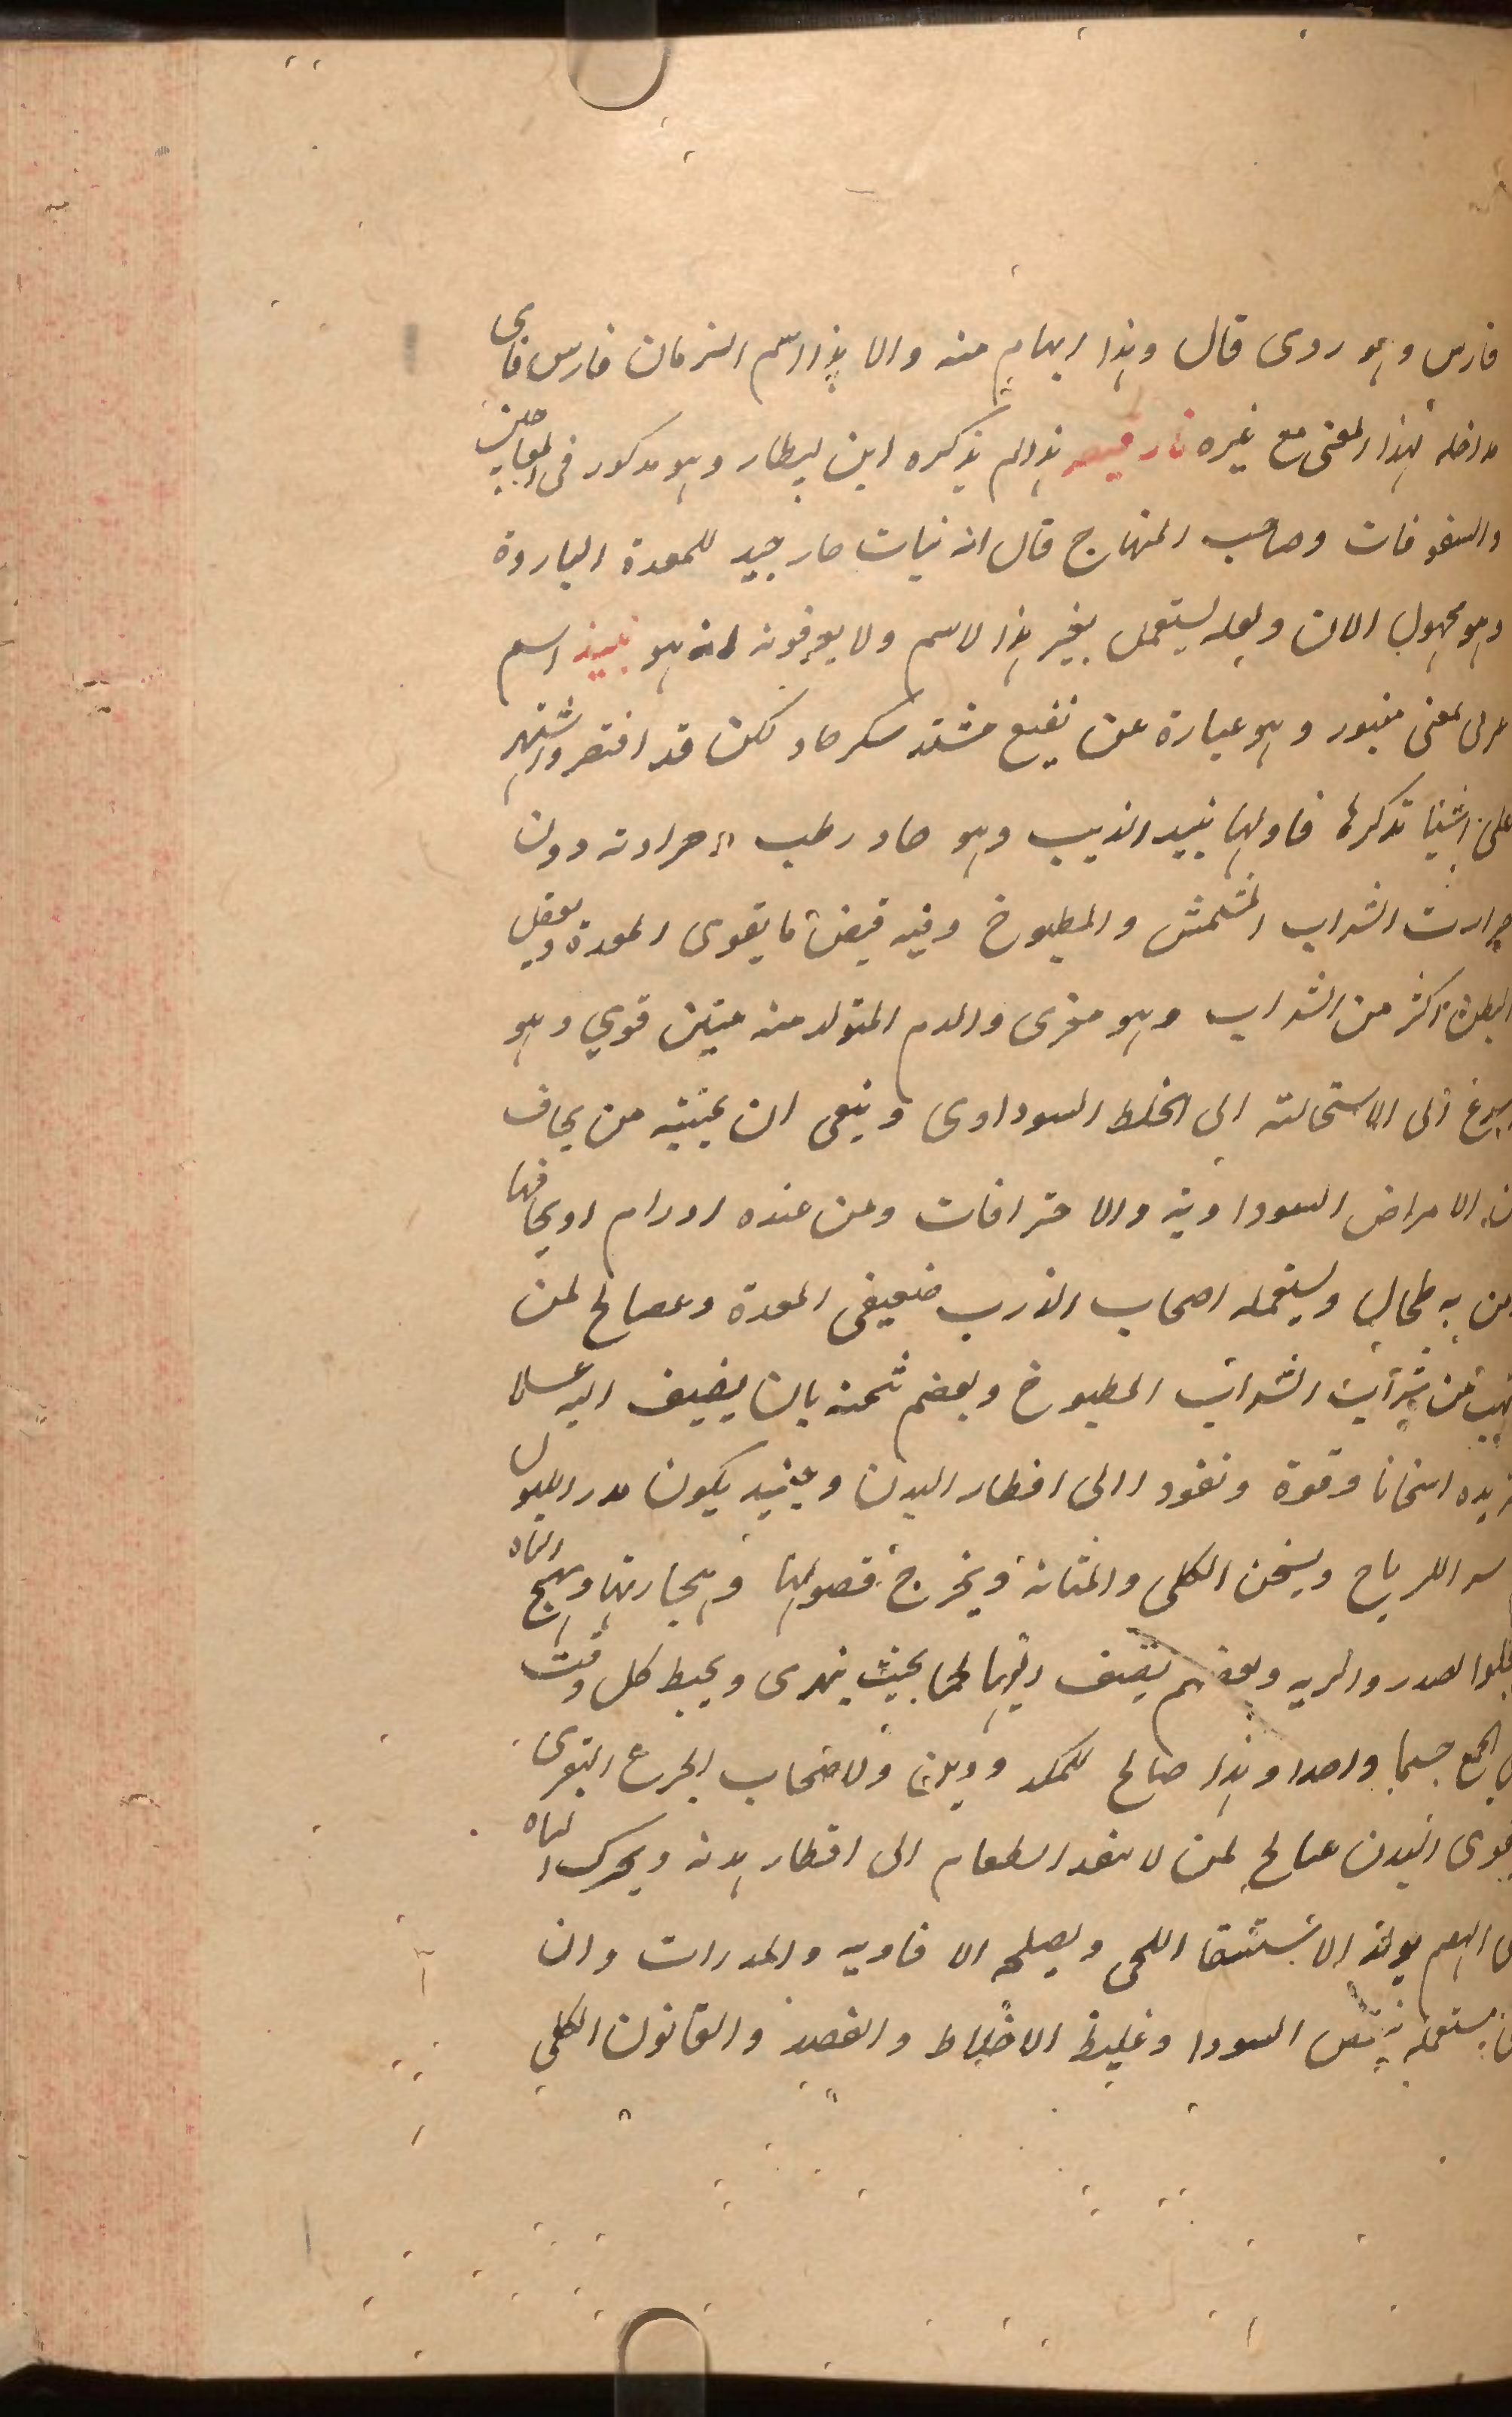 فارس وهو ردى قال وهذا ابهام منه والا هذا اسم الزمان فارس فاى
مداخله لهذا المعنى مع غيره نارقيصر هذا لم يذكره ابن بيطار وهو مذكور فى المعاجين
والسفوفات وصاحب المنهاج قال انه نبات حار جيد للمعدة الباردة
وهو مجهول الان ولعله يستعمل بغير هذا الاسم ولا يعرفونه انه هو نبيذ اسم
عربى بمعنى منبور وهو عبارة عن نقيع مشتد مسكر حاد لكن قد اقتصر واشتهر
على اشيا تذكرها فاولها نبيد الذبيب وهو حار رطب حرارته دون
حرارت الشراب المشمش والمطبوخ وفيه قبض ما يقوى المعدة ويعقل
البطن اكثر من الشراب وهو مغرى والدم المتولد منه متين قوي وهو
سريع الى الاستحالته الى الخلط السوداوى وينبغى ان يجتنبه من يخاف
من الامراض السوداويه والاحتراقات ومن عنده اورام او يخافها
ومن به طحال ويستعمله اصحاب الذرب ضعيفى المعدة وصالح لمن
من شراب الشراب المطبوخ وبعضهم ثمنه بان يضيف اليه عسلا
يزيده اسخانا وقوة ونفودا الى اقطار البدن وحينيد يكون مدر اللبول
للرياح ويسخن الكلى والمثانة ويخرج فصولها وحجارتها ويهيج الباه
يجلوا الصدر والريه وبعضهم يضيف اليها لحما بحيث ينهرى ويخبط كل وقت
الجمع جسما واحدا وهذا صالح للكمد ولاصحاب الجرع البقرى
يقوى البدن صالح لمن لا ينفد الطعام الى اقطار بدنه ويحرك الباه
الهم يولد الاستسقا اللحمى ويصلحه الافاويه والمدرات وان
يستعمله بنقص السودا وغليظ الاخلاط والفصد والقانون الكلي